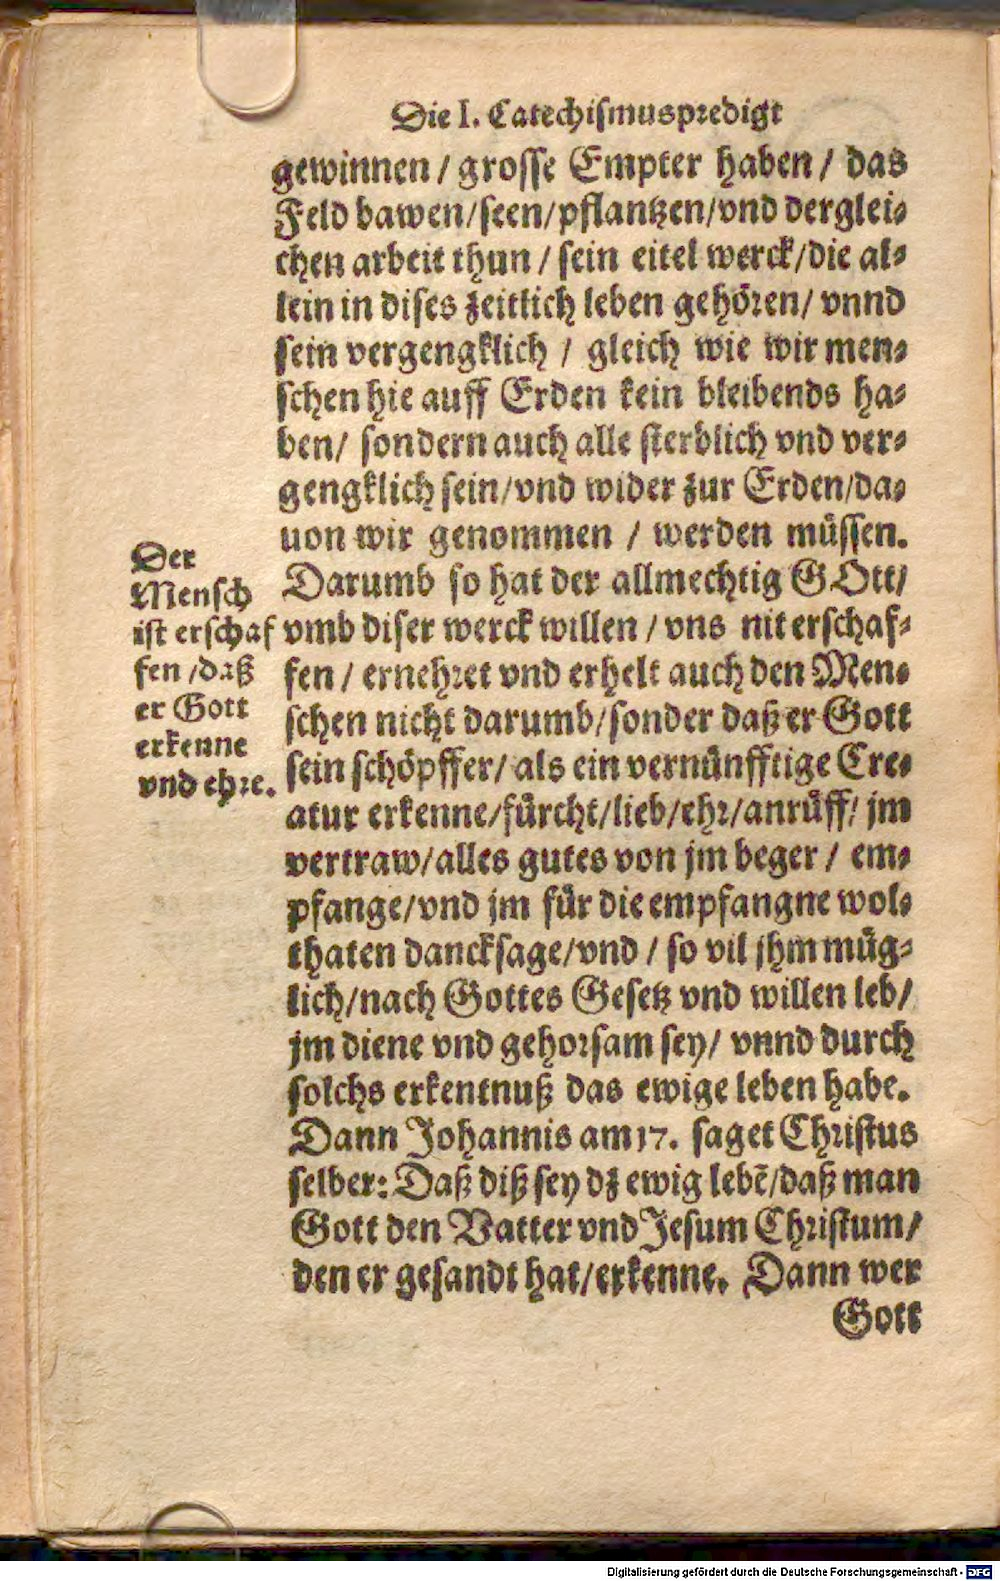 Die I. Catechismuspredigt
gewinnen / grosse Empter haben / das
Feld bawen/seen/pflantzen/vnd derglei⸗
chen arbeit thun / sein eitel werck/die al⸗
lein in dises zeittlich leben gehören/ vnnd
sein vergengklich / gleich wie wir men⸗
schen hie auff Erden kein bleibends ha⸗
ben/ sondern auch alle sterblich vnd ver⸗
gengklich sein/vnd wider zur Erden/da⸗
uon wir genommen / werden müssen.
Darumb so hat der allmechtig GOtt/
vmb diser werck willen / vns nit erschaf⸗
fen / ernehret vnd erhelt auch den Men⸗
schen nicht darumb/sonder daß er Gott
sein schöpffer/ als ein vernünfftige Cre⸗
atur erkenne/fürcht/lieb/ehr/anrüff/ jm
vertraw/alles gutes von jm beger / em⸗
pfange/vnd jm für die empfangne wol⸗
thaten dancksage/vnd / so vil jhm müg⸗
lich/nach Gottes Gesetz vnd willen leb/
jm diene vnd gehorsam sey/ vnnd durch
solchs erkentnuß das ewige leben habe.
Dann Johannis am 17. saget Christus
selber: Daß diß sey dz ewig lebē/daß man
Gott den Vatter vnd Jesum Christum/
den er gesandt hat/erkenne. Dann wer
Gott
Der
Mensch
ist erschaf
fen /daß
er Gott
erkenne
vnd ehre.
Digitalisierung gefördert durch die Deutsche Forschungsgemeinschaft - DFG